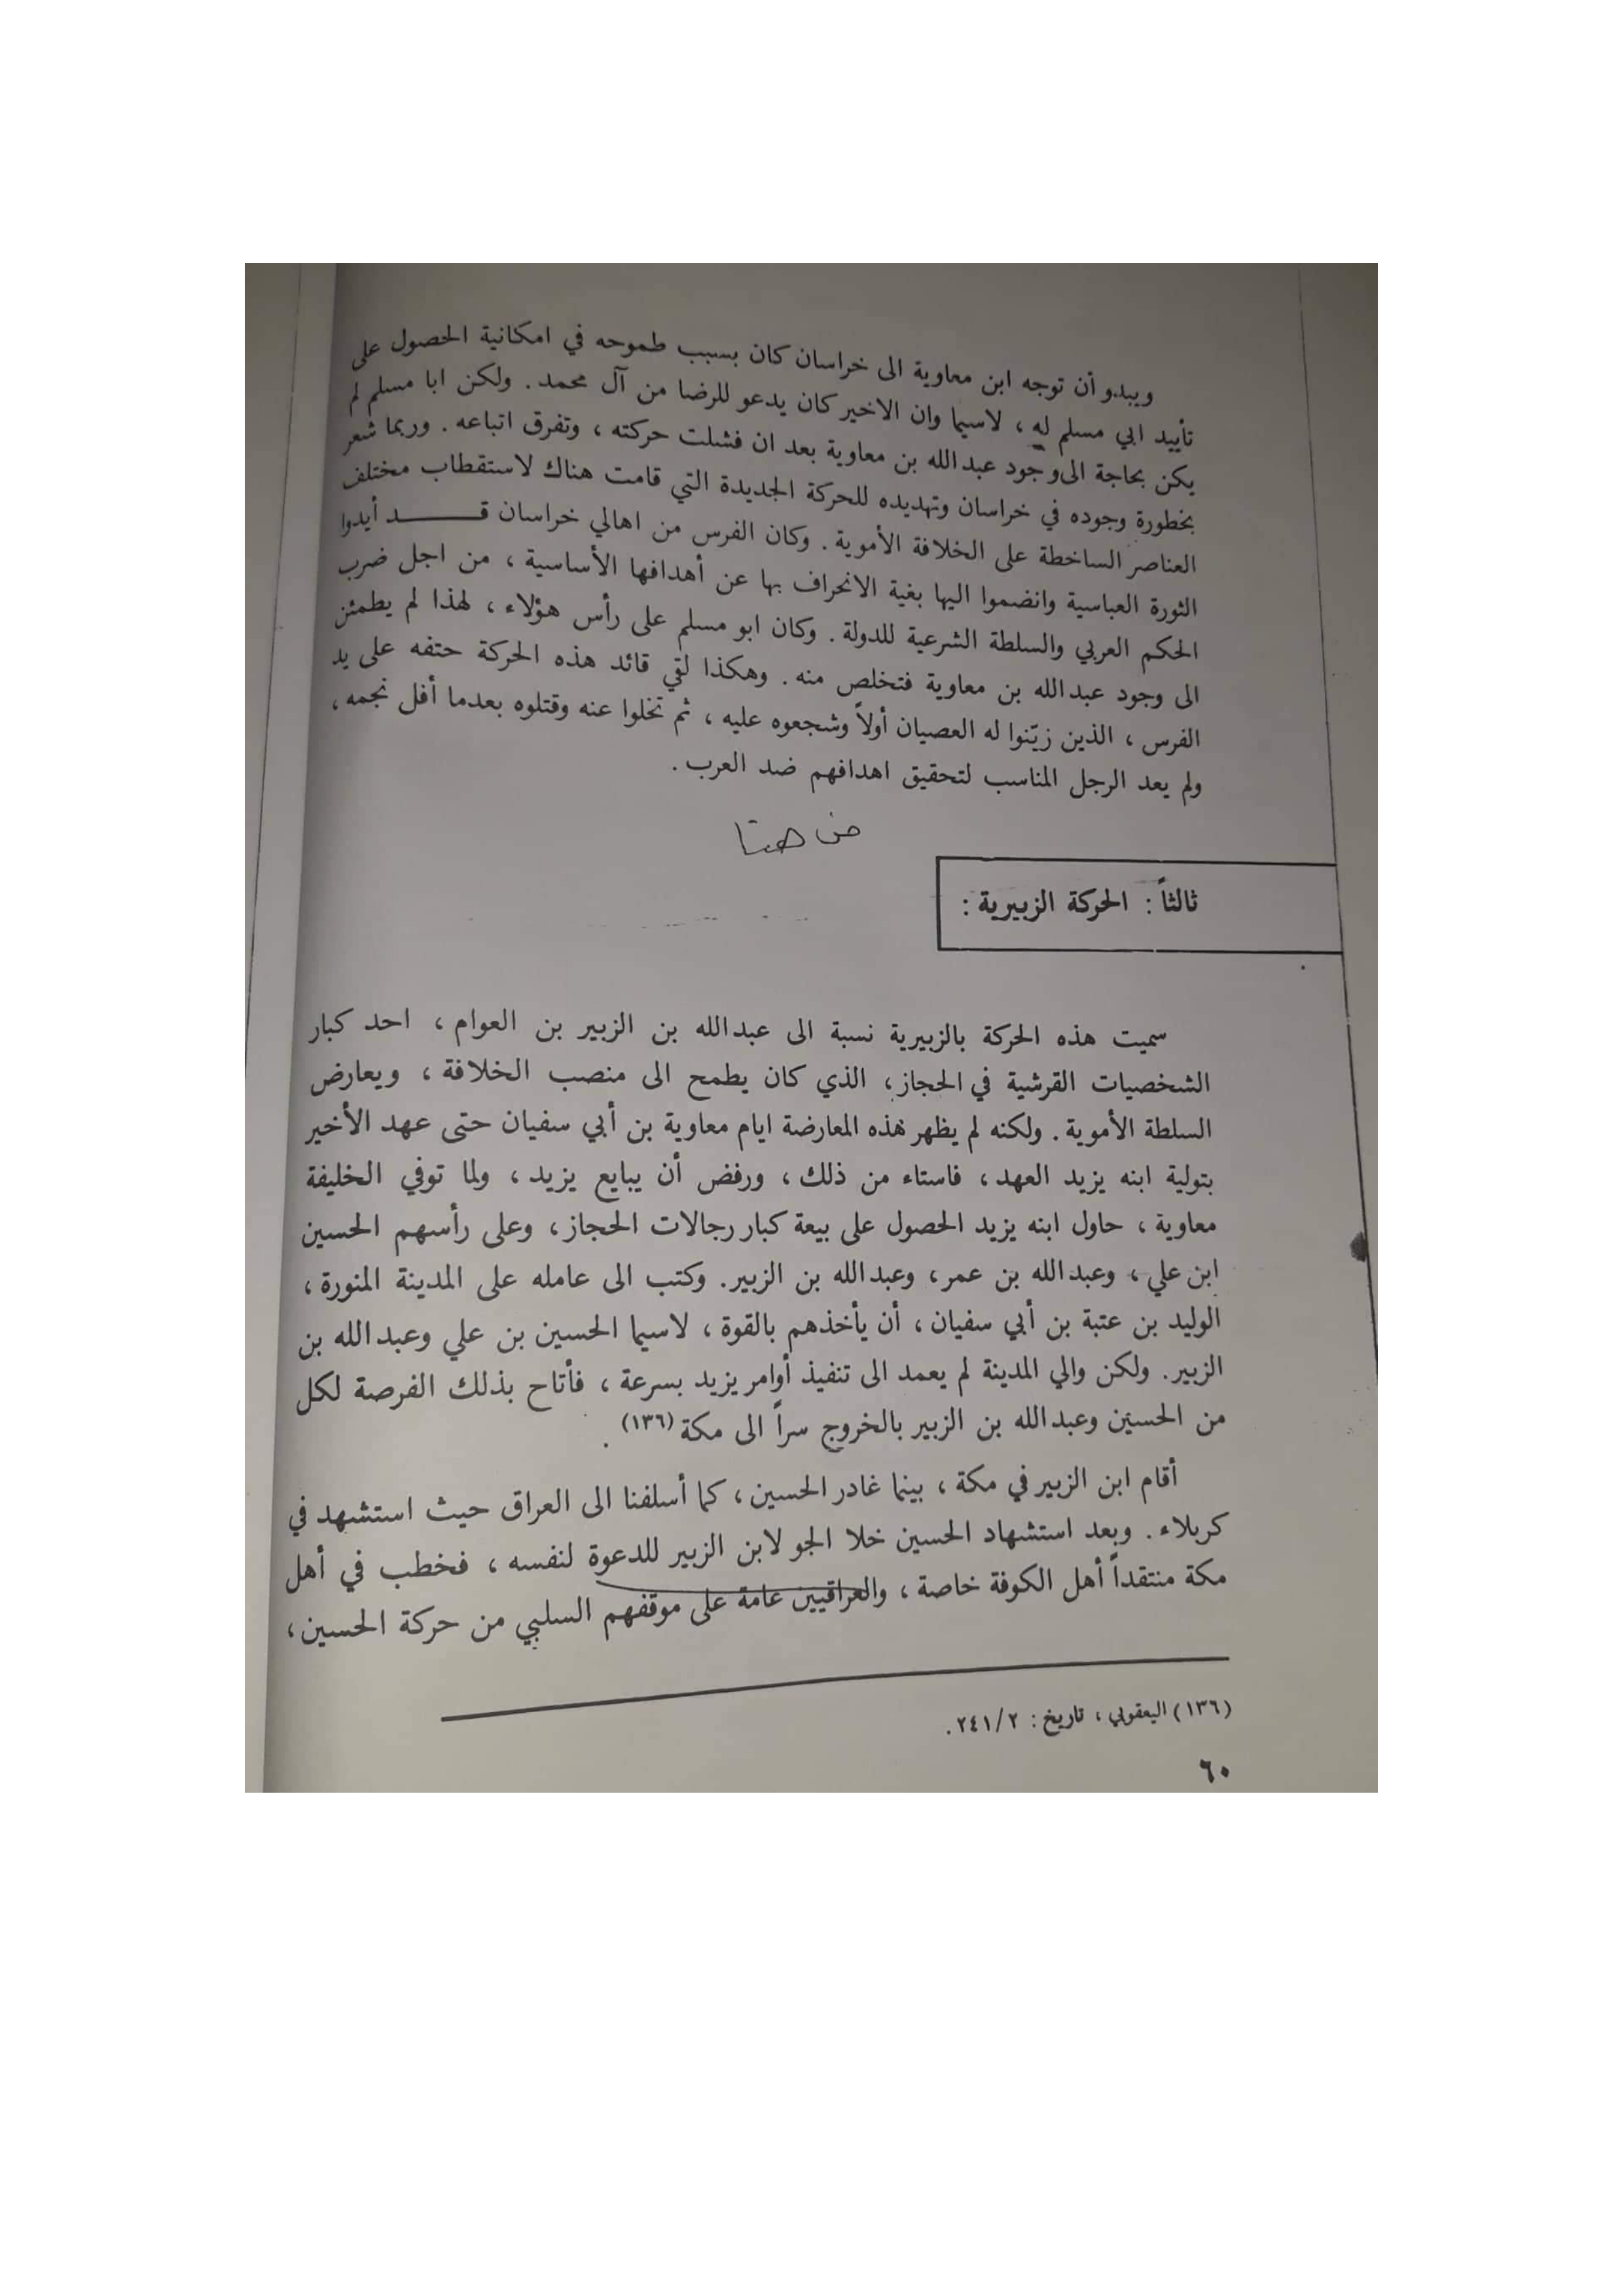 ويبدو أن توجه ابن معاوية الى خراسان كان بسبب طموحه في امكانية الحصول على
تأييد ابي مسلم له ، لاسيما وان الاخير كان يدعو للرضا من آل محمد . ولكن ابا مسلم لم
يكن بحاجة الى وجود عبدالله بن معاوية بعد ان فشلت حركته ، وتفرق اتباعه . وربما شعر
بخطورة وجوده في خراسان وتهديده للحركة الجديدة التي قامت هناك لاستقطاب مختلف
العناصر الساخطة على الخلافة الأموية . وكان الفرس من اهالي خراسان قـــــد أيدوا
الثورة العباسية وانضموا اليها بغية الانحراف بها عن أهدافها الأساسية ، من اجل ضرب
الحكم العربي والسلطة الشرعية للدولة . وكان ابو مسلم على رأس هؤلاء ، لهذا لم يطمئن
الى وجود عبدالله بن معاوية فتخلص منه . وهكذا لقي قائد هذه الحركة حتفه على يد
الفرس ، الذين زيّنوا له العصيان أولاً وشجعوه عليه ، ثم تخلوا عنه وقتلوه بعدما أفل نجمه ،
ولم يعد الرجل المناسب لتحقيق اهدافهم ضد العرب .
من هنا
ثالثاً : الحركة الزبيرية :
سميت هذه الحركة بالزبيرية نسبة الى عبدالله بن الزبير بن العوام ، احد كبار
الشخصيات القرشية في الحجاز ، الذي كان يطمح الى منصب الخلافة ، ويعارض
السلطة الأموية . ولكنه لم يظهر هذه المعارضة ايام معاوية بن أبي سفيان حتى عهد الأخير
بتولية ابنه يزيد العهد ، فاستاء من ذلك ، ورفض أن يبايع يزيد ، ولما توفي الخليفة
معاوية ، حاول ابنه يزيد الحصول على بيعة كبار رجالات الحجاز ، وعلى رأسهم الحسين
ابن علي ، وعبدالله بن عمر ، وعبدالله بن الزبير . وكتب الى عامله على المدينة المنورة ،
الوليد بن عتبة بن أبي سفيان ، أن يأخذهم بالقوة ، لاسيما الحسين بن علي وعبدالله بن
الزبير . ولكن والي المدينة لم يعمد الى تنفيذ أوامر يزيد بسرعة ، فأتاح بذلك الفرصة لكل
من الحسين وعبدالله بن الزبير بالخروج سراً الى مكة (١٣٦) .
أقام ابن الزبير في مكة ، بينما غادر الحسين ، كما أسلفنا الى العراق حيث استشهد في
كربلاء . وبعد استشهاد الحسين خلا الجو لابن الزبير للدعوة لنفسه ، فخطب في أهل
مكة منتقداً أهل الكوفة خاصة ، والعراقيين عامة على موقفهم السلبي من حركة الحسين ،
(١٣٦) اليعقوبي ، تاريخ : ٢٤١/٢ .
٦٠